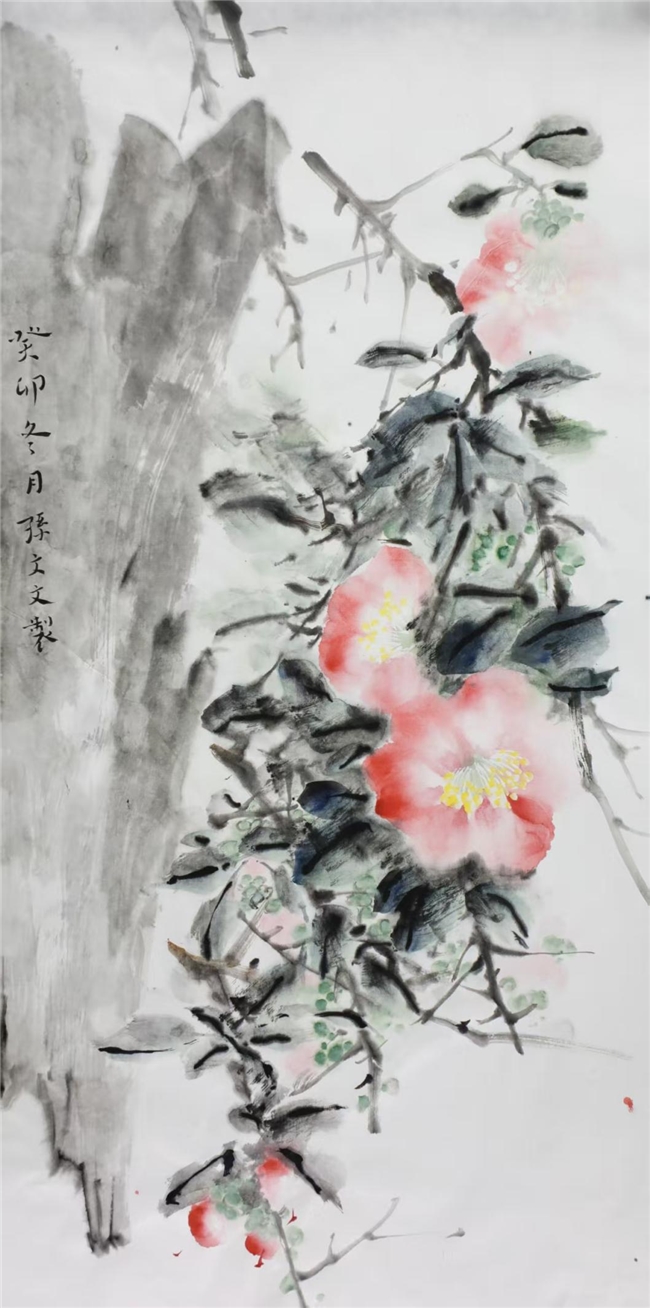 癸卯冬月孫文文製